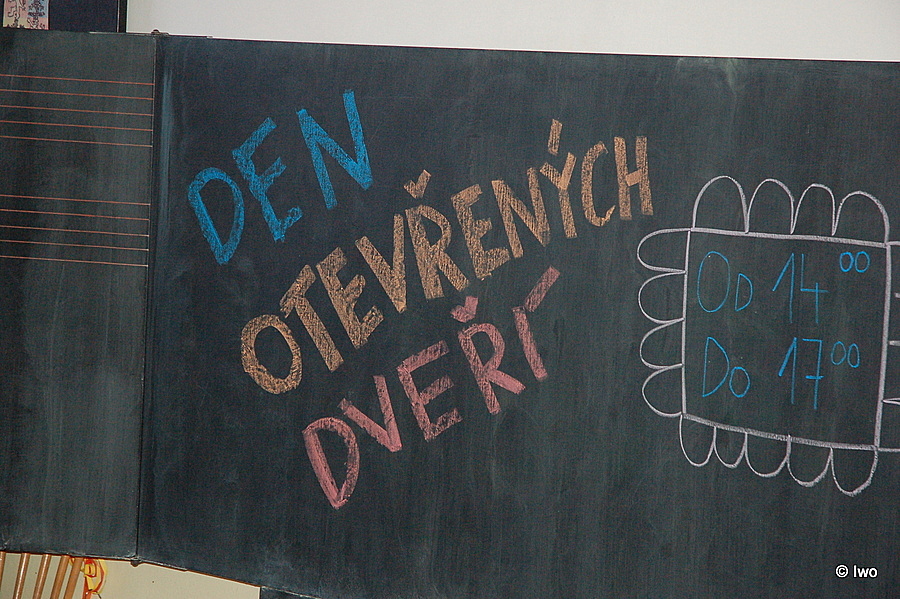 DEN
OTEVŘENÝCH
DVEŘÍ
Od 14 00
Do 17 00
© Iwo